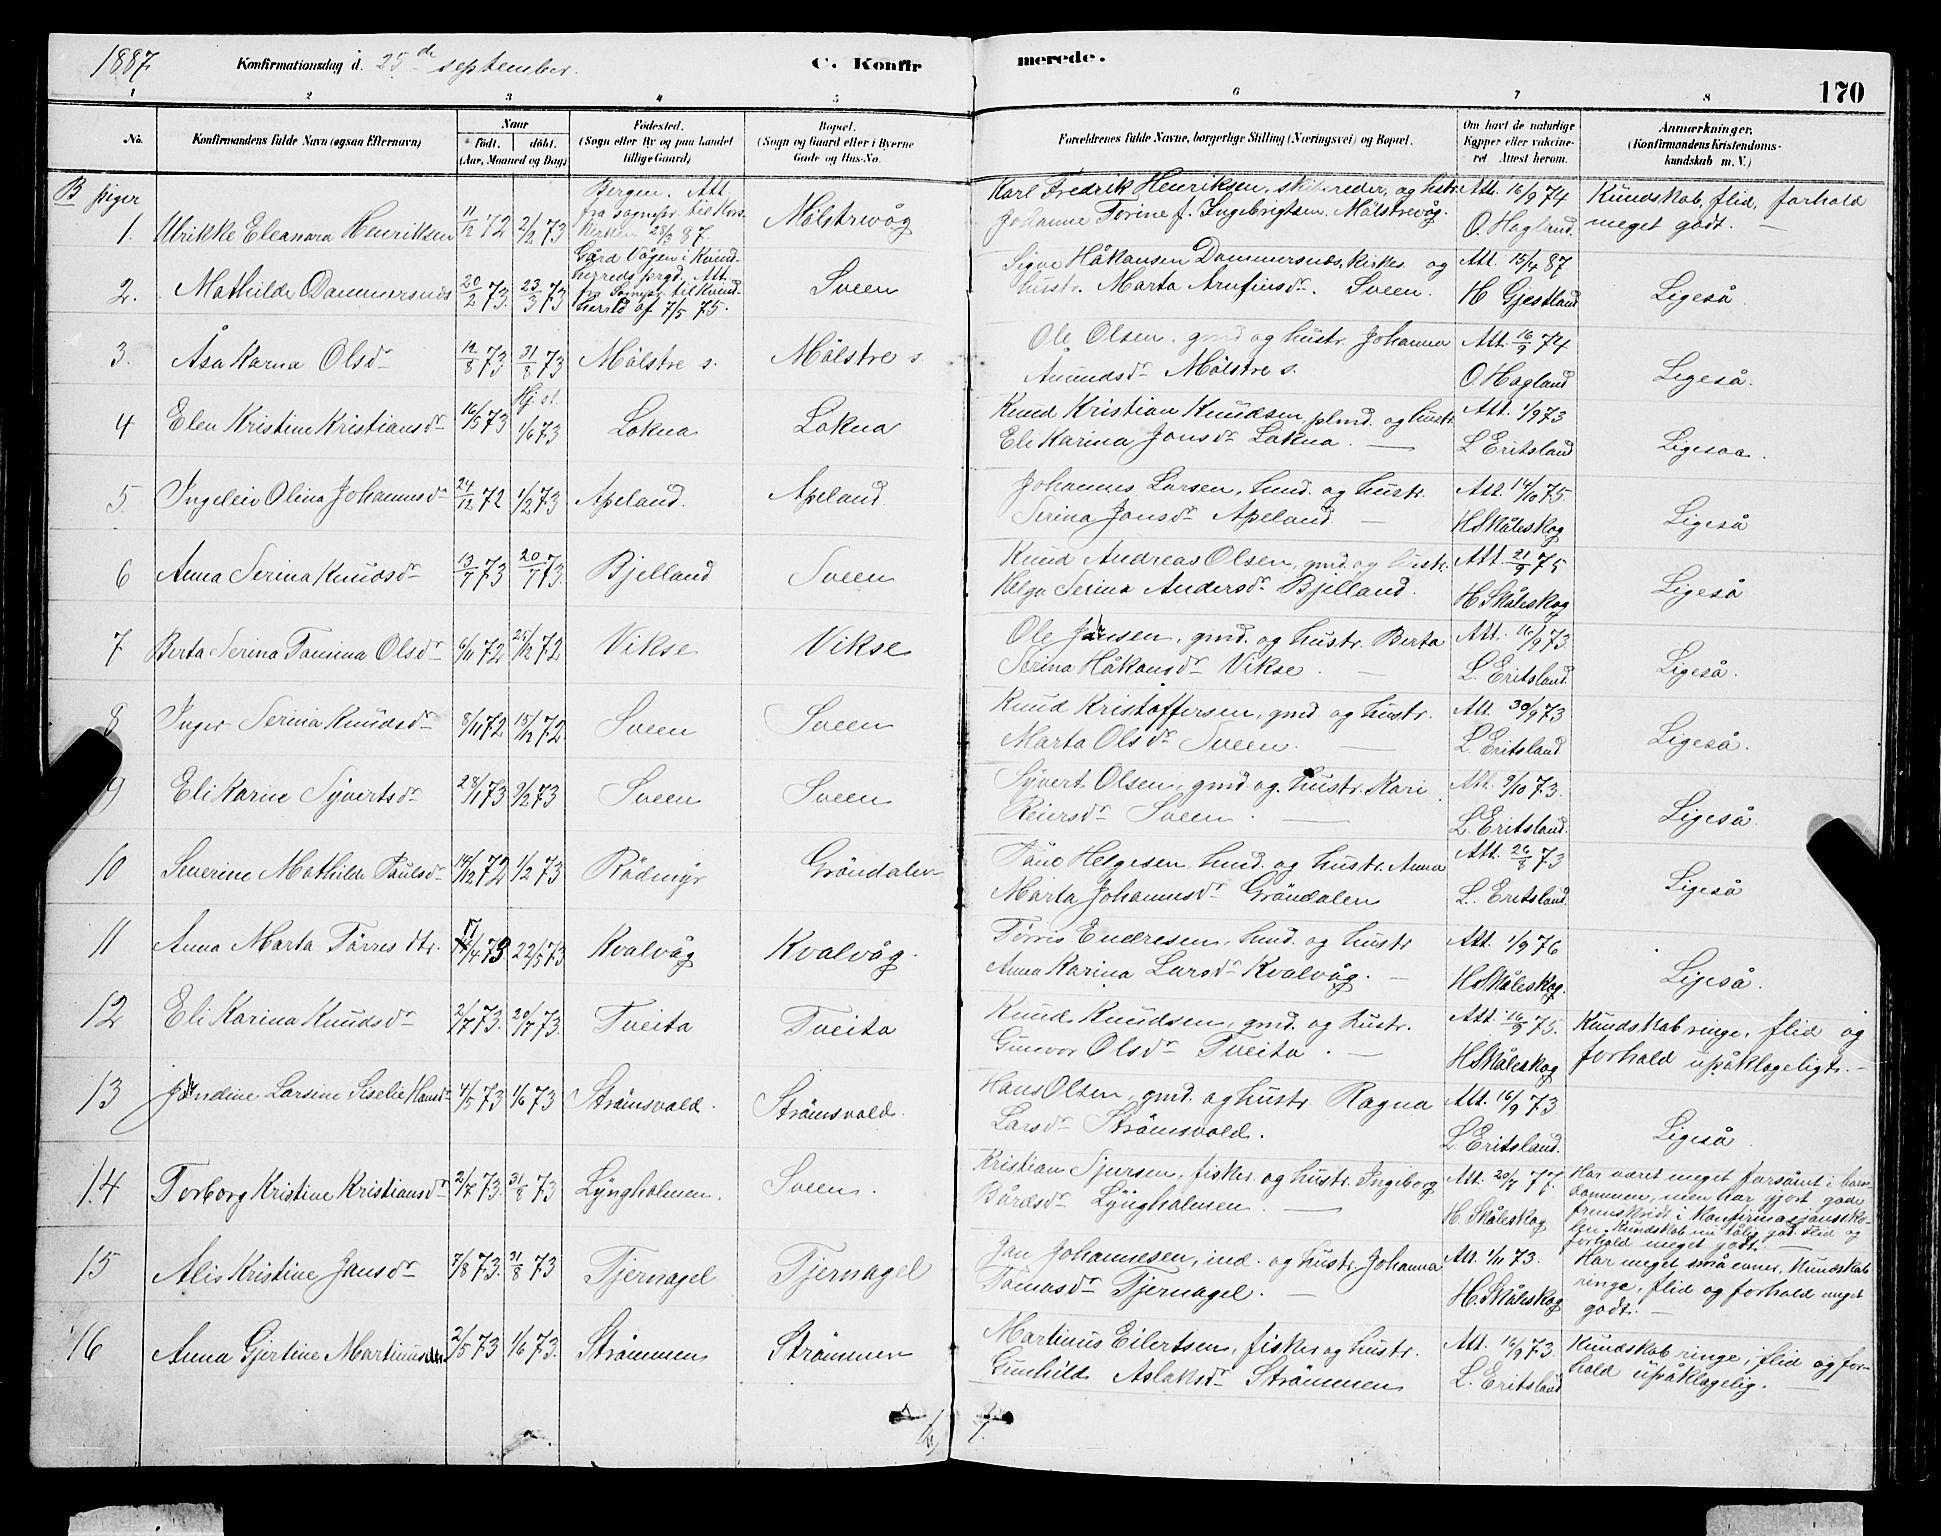 1887. Konfirmationsdag d. 25de september. C. Konfirmerede. 170
1 2 3 4 5 6 7 8
No. Konfirmandens fulde Navn (ogsaa Efternavn) Naar født. døbt. (Aar, Maaned og Dag) Fødested. (Sogn eller By og paa Landet tillige Gaard) Bopæl. (Sogn og Gaard eller i Byerne Gade og Hus-No. Forældrenes fulde Navne, borgerlige Stilling (Næringsvei) og Bopæl. Om havt de naturlige Kopper eller vaccineret. Attest herom. Anmærkninger, (Konfirmandens Kristendomskundskab m. V.)
B piger
1. Ulrikke Eleanora Henriksen 11/12 72 2/2 73 Bergen. Att. fra sognepr. til Kors kirken 28/3 87. Mölstrevåg Karl Fredrik Henriksen, skibsreder, og hstr. Johanne Torine f. Ingebrigtsen. Mölstrevåg. Att. 16/9 74 O. Hagland. Kundskab, flid, forhold meget godt. —
2. Mathilde Dommersnes 20/2 73. 23/3 73 Gård Vågen i Kvindherreds prgd. Att. fra Sognepr. til Kvindherred af 7/5 75. Sveen Signe Håkansen Dommersnes, kirkes. og hustr. Marta Arnfinsdr. Sveen. Att. 15/4 87 H Gjestland Ligeså.
3. Åsa Karna Olsdr 12/8 73 31/8 73 Mölstre s. Mölstre s. Ole Olsen, gmd og hustr. Johanna Amundsdr Mölstre s. Att. 16/9 74 O Hagland Ligeså.
4 Elen Kristine Kristiansdr 16/5 73 Hj. st. 1/6 73 Lokna Lokna Knud Kristian Knudsen plmd. og hustr. Eli Karina Jonsdr Lokna. — Att. 1/9 73 L Eritsland Ligesaa.
5. Ingeleiv Olina Johannesdr 24/12 72 1/2 73 Apeland. Apeland Johannes Larsen, hmd. og hustr. Serina Jonsdr Apeland — Att. 14/10 75. H Skåleskog Ligeså
6 Anna Serina Knudsdr 13/7 73 20/7 73. Bjelland Sveen Knud Andreas Olsen, gmd. og hustr. Helga Serina Andersdr Bjelland. Att. 21/9 75 H. Skåleskog Ligeså
7 Berta Serina Tomina Olsdr 6/11 72 25/12 72 Vikse Vikse Ole Jansen, gmd. og hustr. Berta Serina Håkansdr Vikse. — Att. 16/9 73. L. Eritsland Ligeså.
8 Inger Serina Knudsdr 8/11 72 15/12 72. Sveen Sveen Knud Kristoffersen, gmd. og hustr. Marta Olsdr Sveen. — Att 30/9 73 L. Eritsland Ligeså.
9 Eli Karine Syvertsdr 28/1 73 9/2 73 Sveen Sveen Syvert Olsen, gmd og hustr. Kari Reiersdr Sveen. — Att. 9/10 73. L. Eritsland. Ligeså.
10 Severine Mathilde Paulsdr 14/12 72 1/2 73 Rödmyr Gröndalen Paul Helgesen, hmd. og hustr. Anna Marta Johannesdr Gröndalen Att. 26/8 73 L. Eritsland. Ligeså
11 Anna Marta Törres dtr. 17/4 73 22/5 73 Kvalvåg Kvalvåg. Törris Endresen, hmd. og hustr Anna Karina Larsdr Kvalvåg. — Att. 1/9 76 H Skåleskog. Ligeså.
12 Eli Karina Knudsdr 2/7 73. 20/7 73. Tveita Tveita Knud Knudsen, gmd. og hustr. Gunvor Olsdr Tveita. — Att. 16/9 75. H Skåleskog Kundskab ringe, flid og forhold upåklageligt. —
13 Jondine Larsine Siselie Hansdr 4/5 73 1/6 73 Strömsvold. Strömsvold. Hans Olsen, gmd. og hustr. Ragna Larsdr Strömsvold. Att. 16/9 73 L. Eritsland. Ligeså
14 Torborg Kristine Kristiansdr 2/7 73. 31/8 73 Lyngholmen. Sveen. Kristian Sjursen, fisker og hustr. Ingeborg Bårdsdr Lyngholmen. — Att. 20/7 77. H. Skåleskog Har været meget forsömt i barndommen, men har gjort gode fremskridt i konfirmasjonsskolen. Kundskab nu tålig god. Flid og forhold meget godt. —
15 Alis Kristine Jansdr 7/8 73. 31/8 73 Tjernagel Tjernagel Jan Johannesen, ind. og hustr. Johanna Tomasdr Tjernagel. — Att. 1/11 73. H. Skåleskog Har meget små evner, Kundskab ringe, flid og forhold meget godt. —
16 Anna Gjertine Martinusdtr. 2/5 73 1/6 73. Strömmen Strömmen Martinus Eilertsen, fisker og hustr. Gunhild Aslaksdr Strömmen Att. 16/9 73. L. Eritsland Kundskab ringe, flid og forhold upåklagelig. —